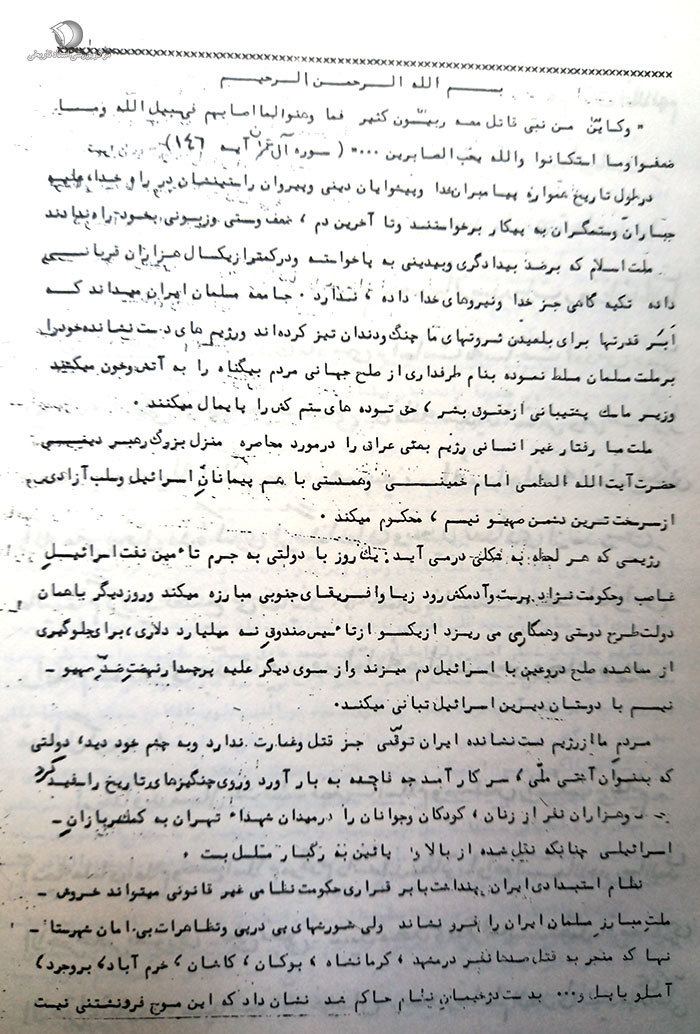 مرکز بررسی اسناد تاریخی
بسم الله الرحمن الرحیم
" وکاین من نبی قاتل معه ربیون کثیر فما وهنوا لما اصابهم فی سبیل الله وما
ضعفوا وما استکانوا والله یحب الصابرین ..." ( سوره آل عمران آیه ۱۴۶ )
در طول تاریخ همواره پیامبران خدا وپیشوایان دینی وپیروان راستینشان در راه خدا، علیه
جباران وستمگران به پیکار برخواستند وتا آخرین دم ، ضعف وستی وزبونی بخود راه ندادند
ملت اسلام که بر ضد بیدادگری وبیدینی به پا خواسته ودر کمتر از یکسال هزاران قربانی
داده تکیه گاهی جز خدا ونیروهای خدا داده ، ندارد . جامعه مسلمان ایران میداند که
ابر قدرتها برای بلعیدن ثروتهای ما چنگ ودندان تیز کرده اند ورژیم های دست نشانده خود را
بر ملت مسلمان مسلط نموده بنام طرفداری از صلح جهانی مردم بیگناه را به آتش وخون میکشند
وزیر ماسک پشتیبانی از حقوق بشر ، حق توده های ستم کش را پایمال میکنند .
ملت ما رفتار غیر انسانی رژیم بعثی عراق را در مورد محاصره منزل بزرگ رهبر دینی
حضرت آیت الله العظمی امام خمینی وهمدستی با هم پیمانان اسرائیل وسلب آزادی
از سرخت ترین دشمن صهیو نیسم ، محکوم میکند .
رژیمی که هر لحظه به شکلی در می آید : یک روز با دولتی به جرم تاٴمین نفت اسرائیل
غاصب وحکومت نژاد پرست وآدمکش رود زیا وافریقای جنوبی مبارزه میکند وروز دیگر باهمان
دولت طرح دوستی وهمکاری می ریزد از یکسو از تاٴسیس صندوق نه میلیارد دلاری ، برای جلوگیری
از معاهده صلح دروغین با اسرائیل دم میزند واز سوی دیگر علیه پرچمدار نهضت ضد صهیو -
نیسم با دوستان دیرین اسرائیل تبانی میکند .
مردم ما از رژیم دست نشانده ایران توقعی جز قتل وغارت ندارد وبه چشم خود دید ، دولتی
که بعنوان آشتی ملی ، سر کار آمد چه فاجعه به بار آورد وروی چنگیزهای تاریخ را سفید کرد
وهزاران نفر از زنان ، کودکان وجوانان را در میدان شهداء تهران به کمک سربازان -
اسرائیلی چنانکه نقل شده از بالا و پائین به رگبار مسلسل بست .
نظام استبدادی ایران پنداشت با بر قراری حکومت نظامی غیر قانونی میتواند خروش -
ملت مبارز مسلمان ایران را فرو نشاند ولی شورشهای پی در پی وتظاهرات بی امان شهرستا -
نها که منجر به قتل صدها نفر در مشهد ، کرمانشاه ، بوکان ، کاشان ، خرم آباد ، بروجرد ،
آمل و بابل و... بدست دژخیمان نظام حاکم شد نشان داد که این موج فرونشتنی نیست